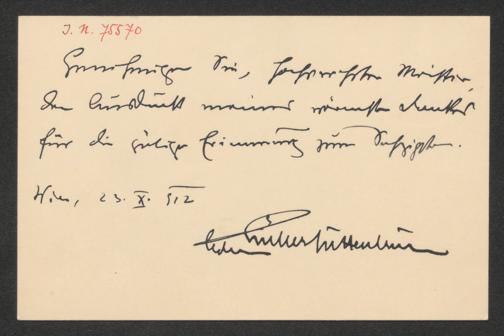 I. N. 75570
Genehmigen Sie, hochverehrter Meister,
den Ausdruck meines wärmsten Dankes
für die gütige Erinnerung zum Sechzigsten.
Wien, 23. X. 912